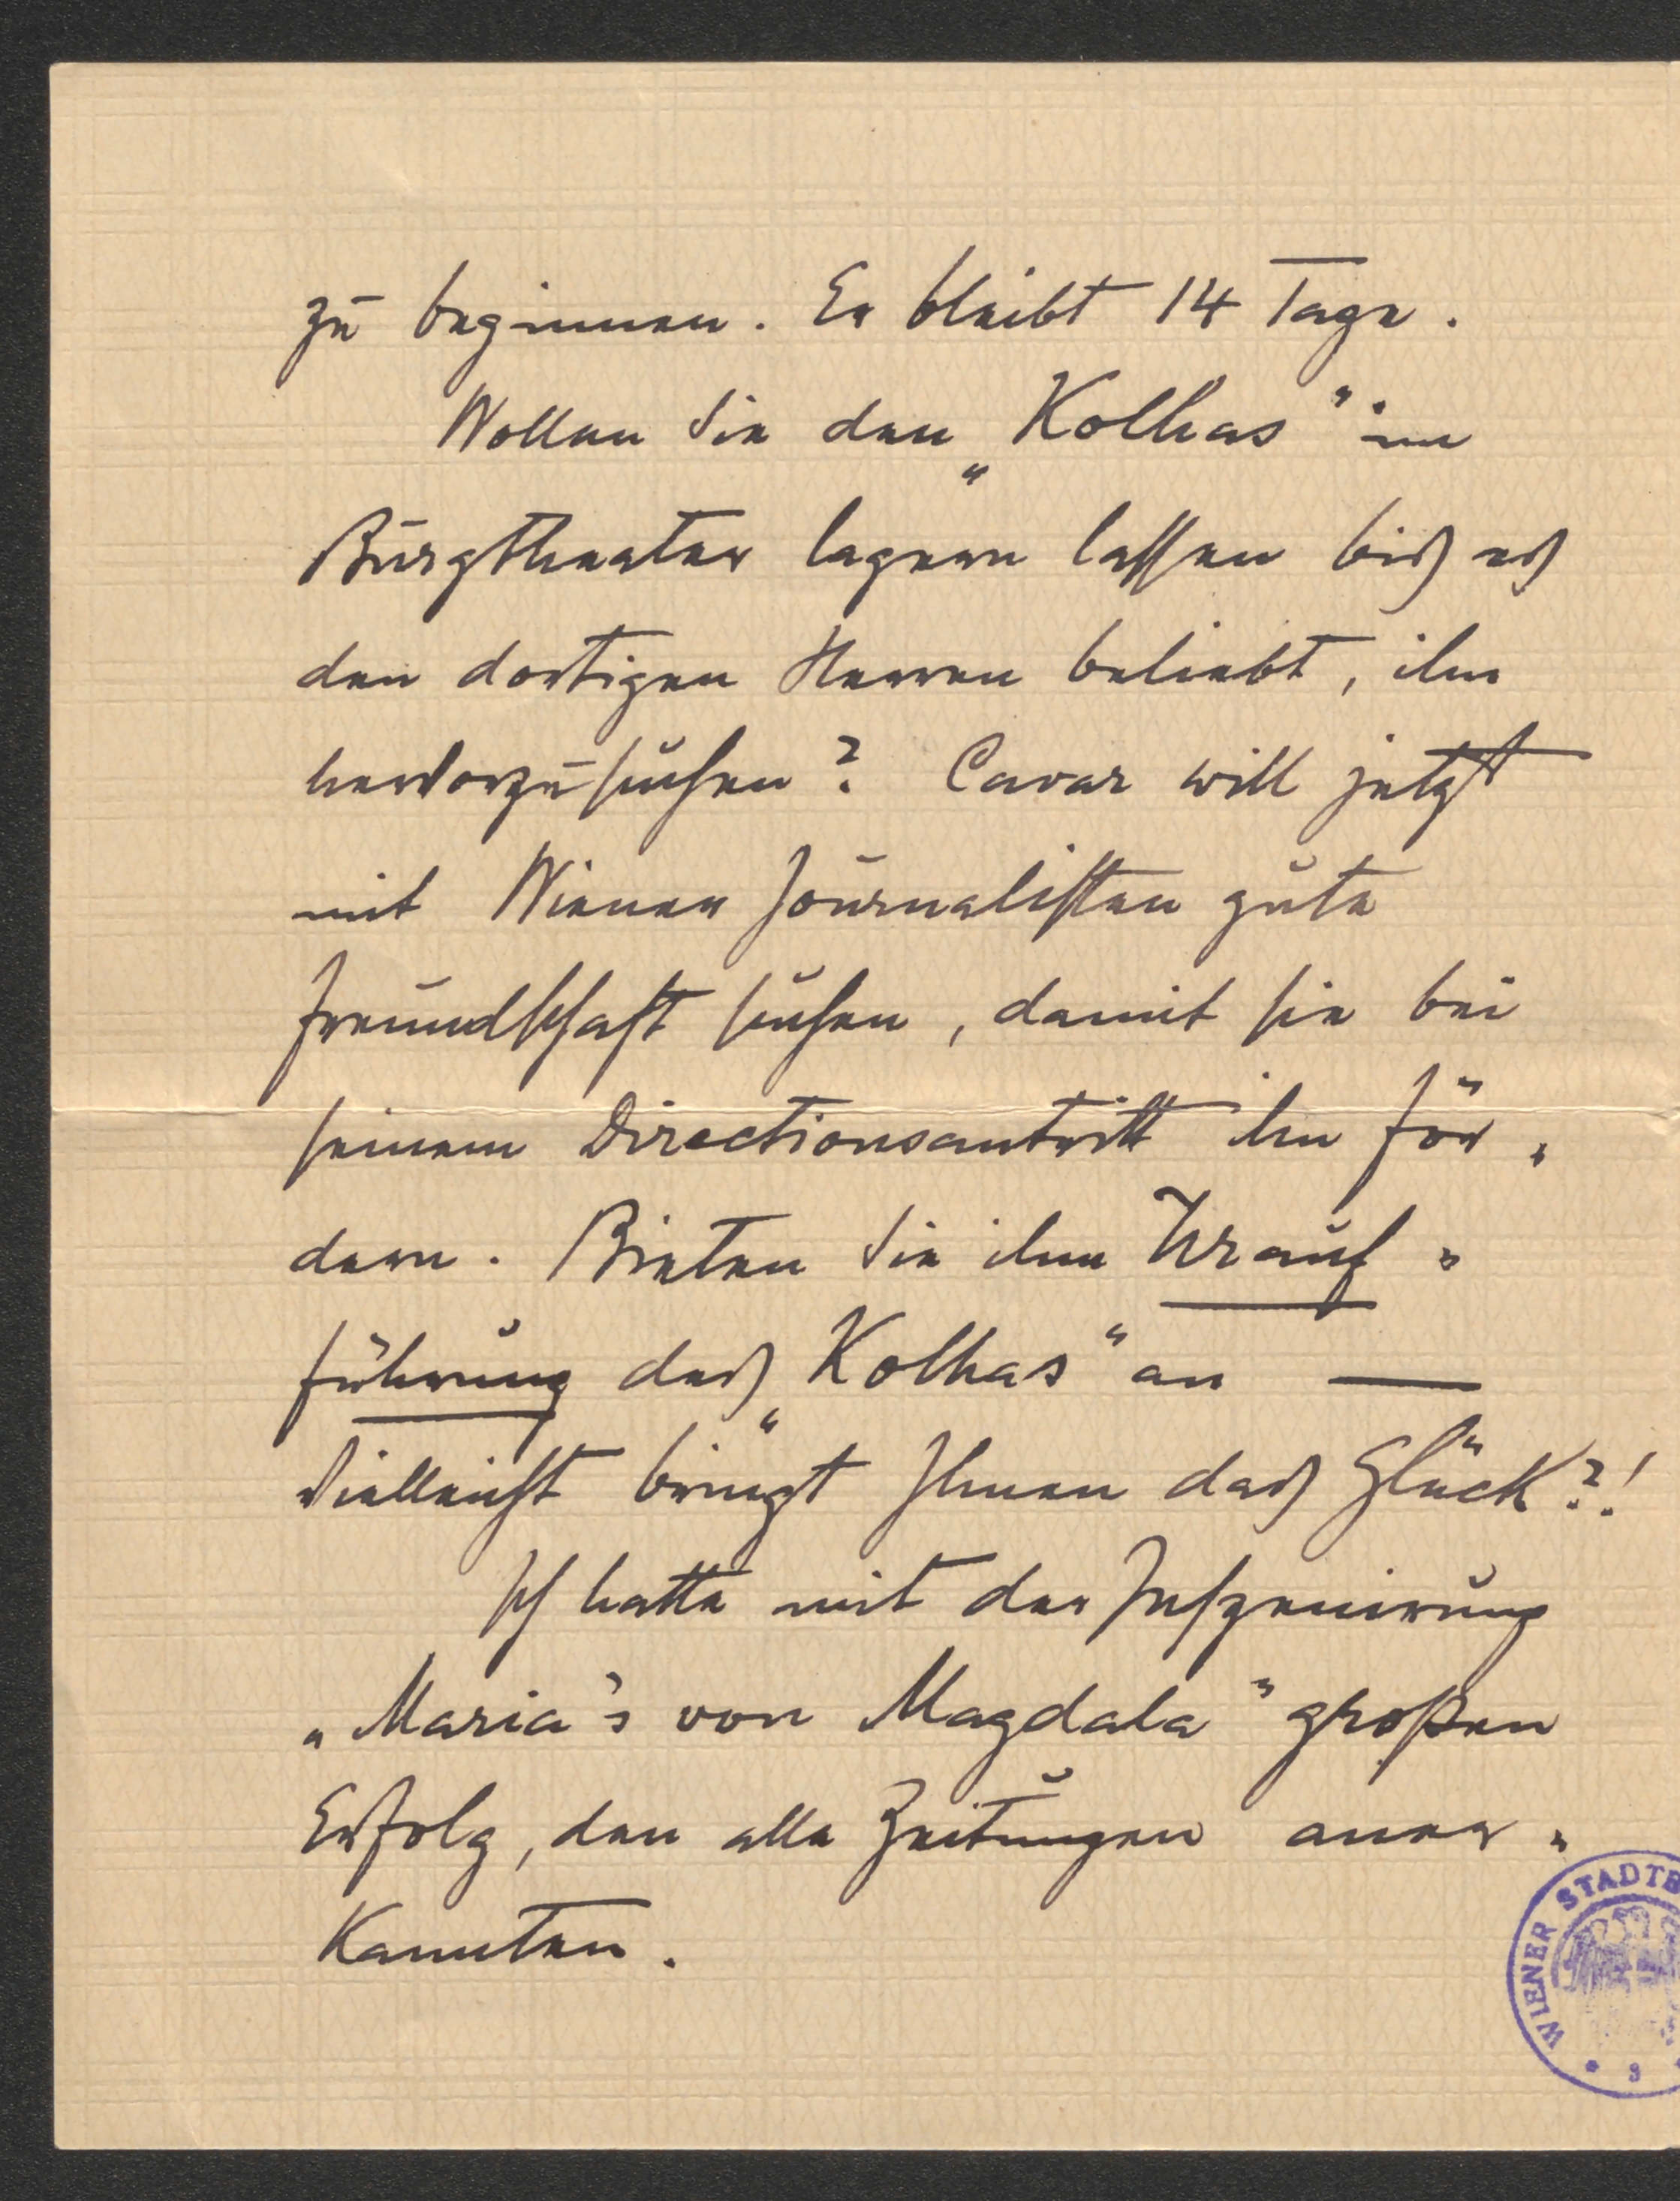 zu beginnen. Er bleibt 14 Tage.
Wollen Sie den „Kolhas" im
Burgtheater lagern lassen bis es
den dortigen Herren beliebt, ihn
hervorzusuchen? Cavar will jetzt
mit Wiener Journalisten gute
Freundschaft suchen, damit sie bei
seinem Directionsantritt ihn för-
dern. Bieten Sie ihm Urauf-
führung des „Kolhas" an —
Vielleicht bringt Ihnen das Glück?!
Ich hatte mit der Inszenirung
„Maria's von Magdala" großen
Erfolg, den alle Zeitungen aner-
kannten.
WIENER STADTB
3